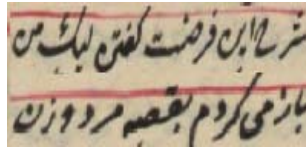 شرح این فرضست گفتن لیک من
باز می گردم بقصه مرد و زن